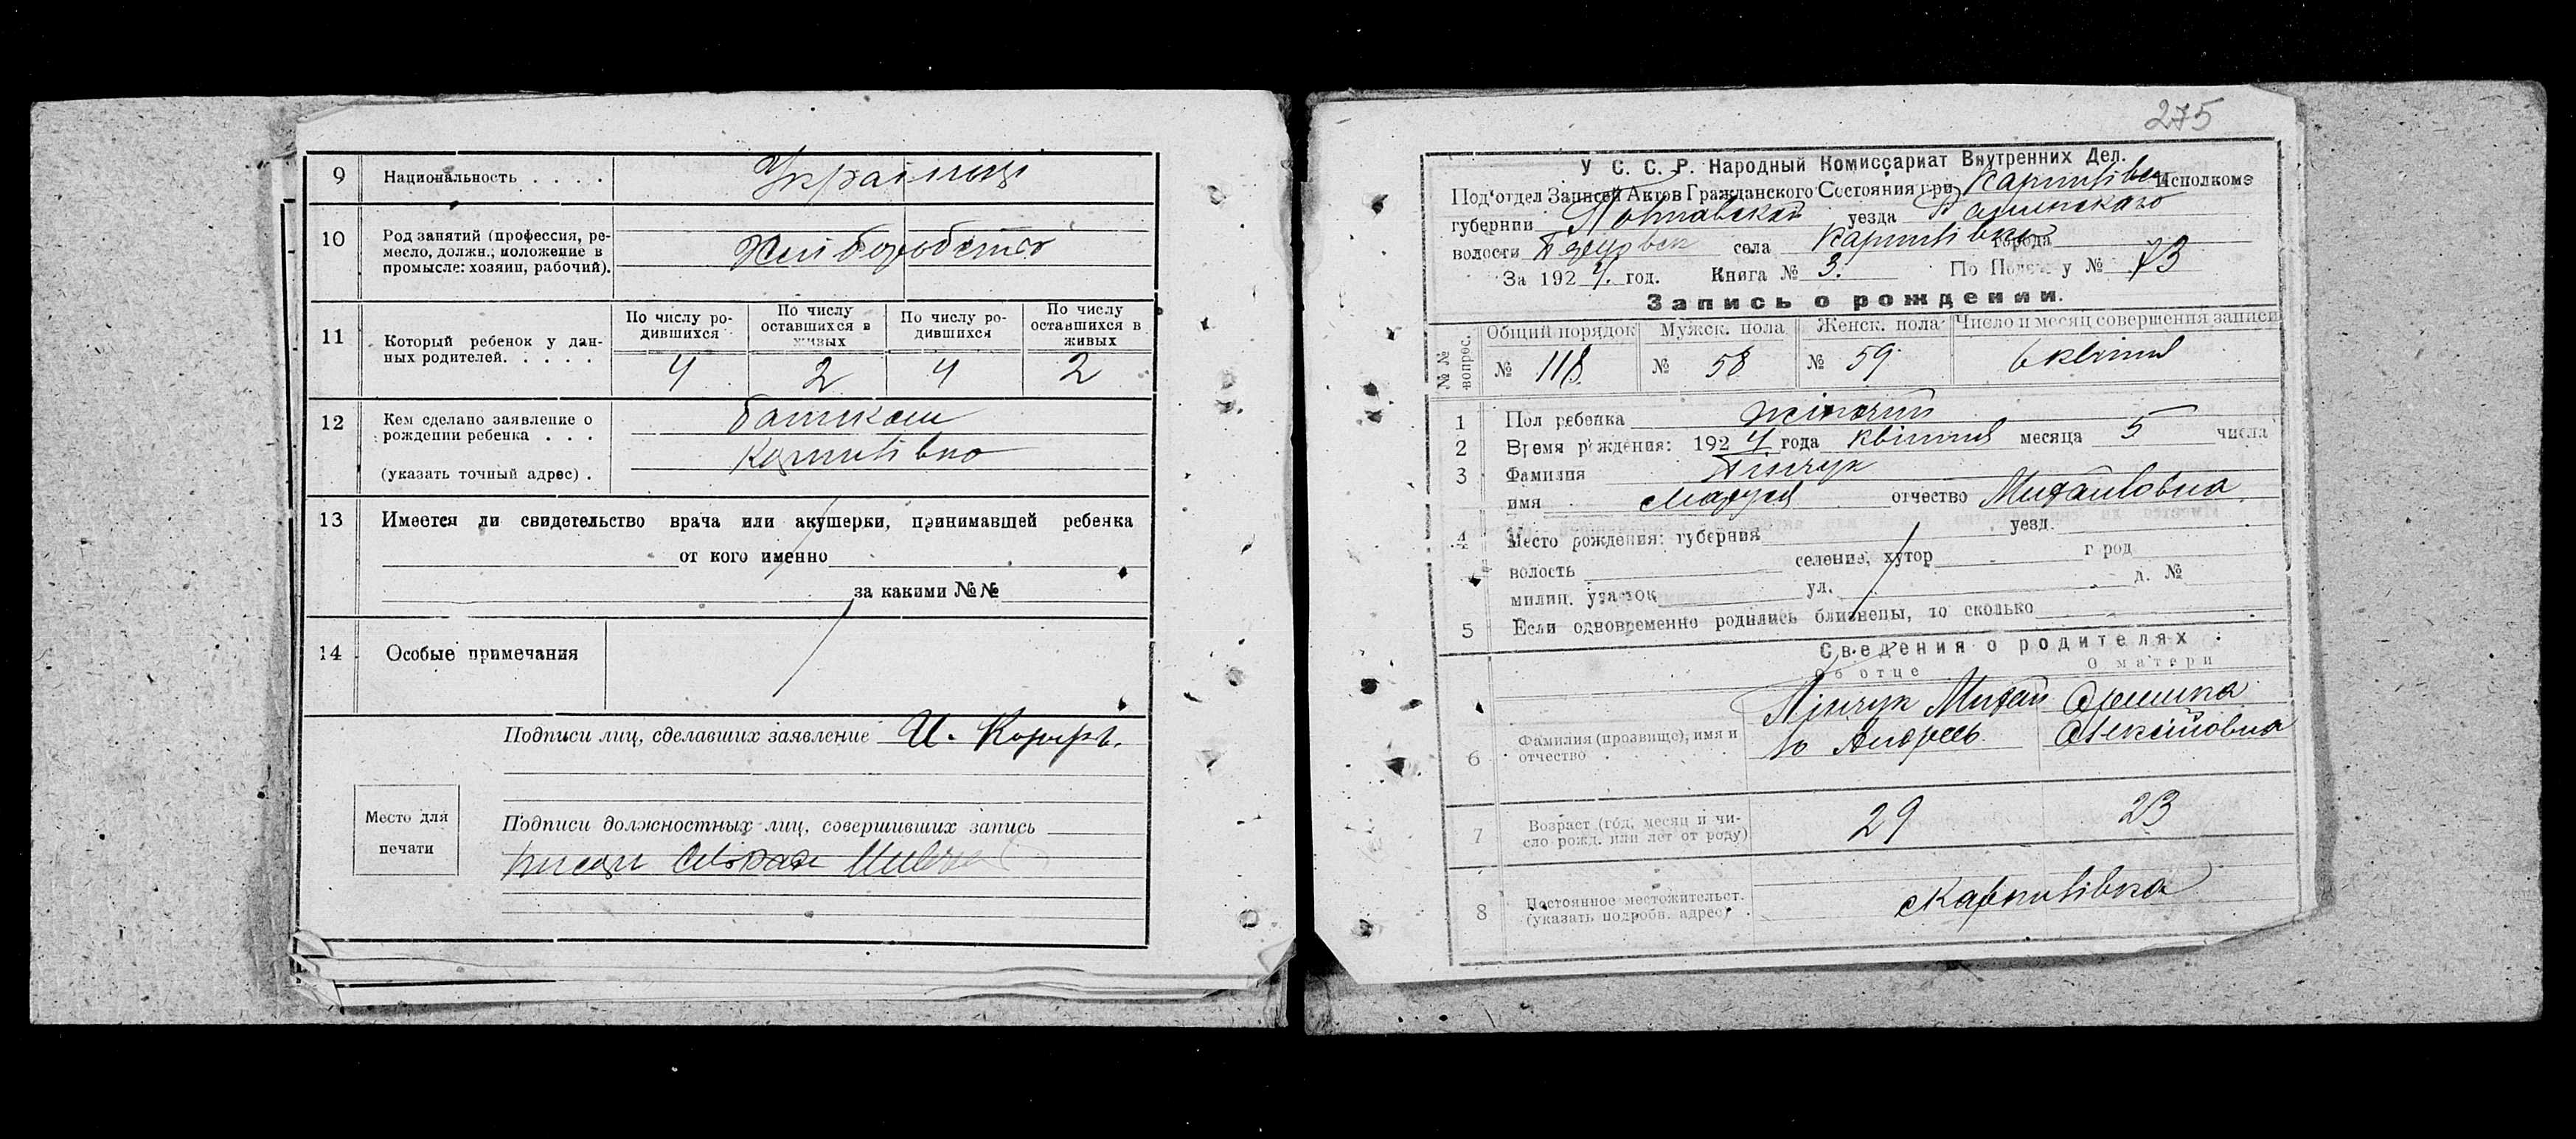 9 Национальность . . . . Українці
10 Род занятий (профессия, ре-
месло, должн., положение в
промысле: хозяин, рабочий). Хліборобство
11 Который ребенок у дан-
ных родителей. . . . .
По числу ро-
дившихся
По числу
оставшихся в
живых
По числу ро-
дившихся
По числу
оставшихся в
живых
4 2 4 2
12 Кем сделано заявление о
рождении ребенка . . .
(указать точный адрес) .
батьком
13 Имеется ли свидетельство врача или акушерки, принимавшей ребенка
от кого именно
за какими №№
14 Особые примечания
Подписи лиц, сделавших заявление И.
Место для
печати
Подписи должностных лиц, совершивших запись
275
У. С. С. Р. Народный Комиссариат Внутренних Дел.
Под'отдел Записей Актов Гражданского Состояния при Исполкоме
губернии Полтавской уезда
волости села города
За 1924 год. Книга № 3. По № 73
Запись о рождении.
№№ вопрос.
Общий порядок Мужск. пола Женск. пола Число и месяц совершения записи
№ 118 № 58 № 59 6 квітня
1 Пол ребенка жіночий
2 Время рождения: 1924 года квітня месяца 5 числа
3 Фамилия Пінчук
имя Маруся отчество Михайловна
4 Место рождения: губерния уезд
волость селение, хутор город
милиц. участок ул. д. №
5 Если одновременно родились близнецы, то сколько
Сведения о родителях
Об отце О матери
6 Фамилия (прозвище), имя и
отчество .
Пінчук Михай
ло Андреев
Олексіïовна
7 Возраст (год, месяц и чи-
сло рожд. или лет от роду) 29 23
8 Постоянное местожительст.
(указать подробн. адрес) .